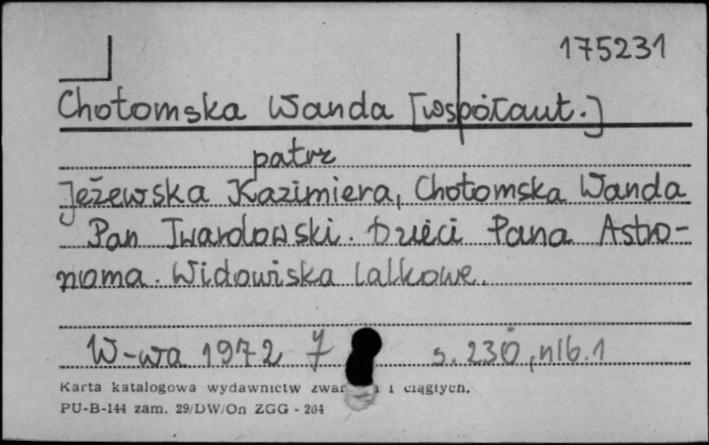 175231
Chotomska Wanda [współaut.]
patrz
Jeżewska Kazimiera, Chotomska Wanda
Pan Twardowski. Dzieci Pana Astro-
noma. Widowiska lalkowe.
W-wa 1972 s. 230, nlb. 1
Karta katalogowa wydawnictw i ciągłych.
PU-B-144 zam. 29/DW/On ZGG - 204